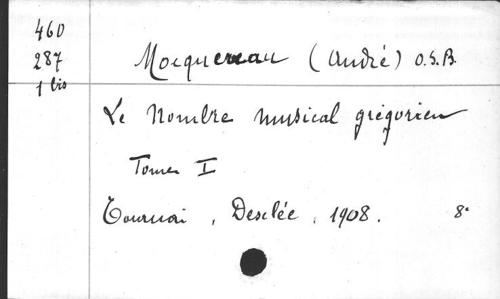 460
287
1 bis
Mocquereau (André) O.S.B.
Le Nombre musical grégorien
Tome I
Tournai, Desclée, 1908. 8°